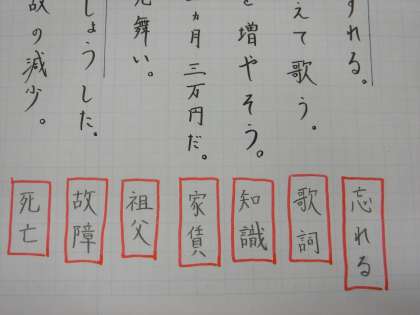 すれる。
えて歌う。
を増やそう。
ヵ月三万円だ。
見舞い。
しょうした。
故の減少。
忘れる
歌詞
知識
家賃
祖父
故障
死亡